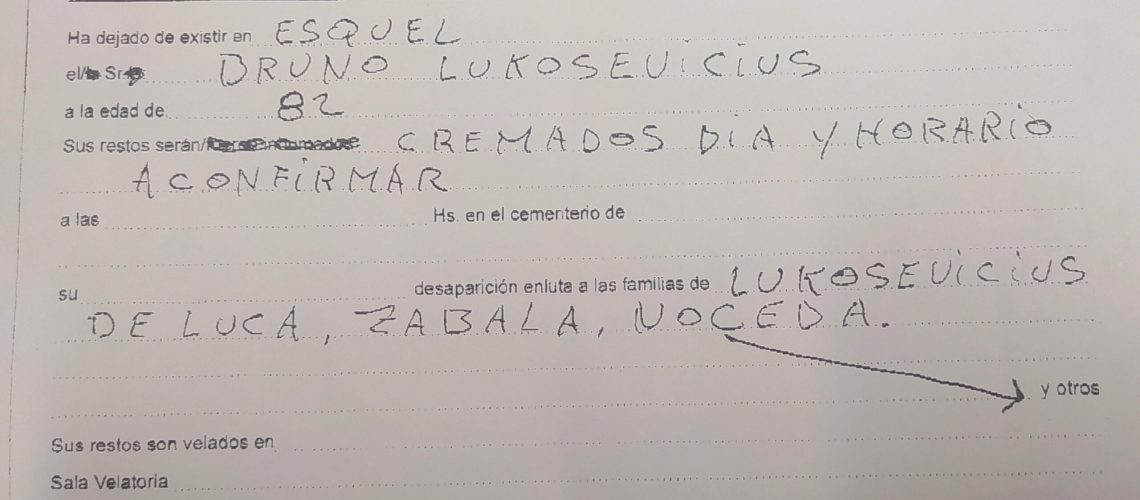 Ha dejado de existir en ESQUEL
el/la Sr. BRUNO LUKOSEVICIUS
a la edad de: 82
Sus restos serán/ CREMADOS DIA Y HORARIO
A CONFIRMAR
a las Hs. en el cementerio de
su desaparición enluta a las familias de LUKOSEVICIUS
DE LUCA, ZABALA, NOCEDA.
y otros
Sus restos son velados en
Sala Velatoria